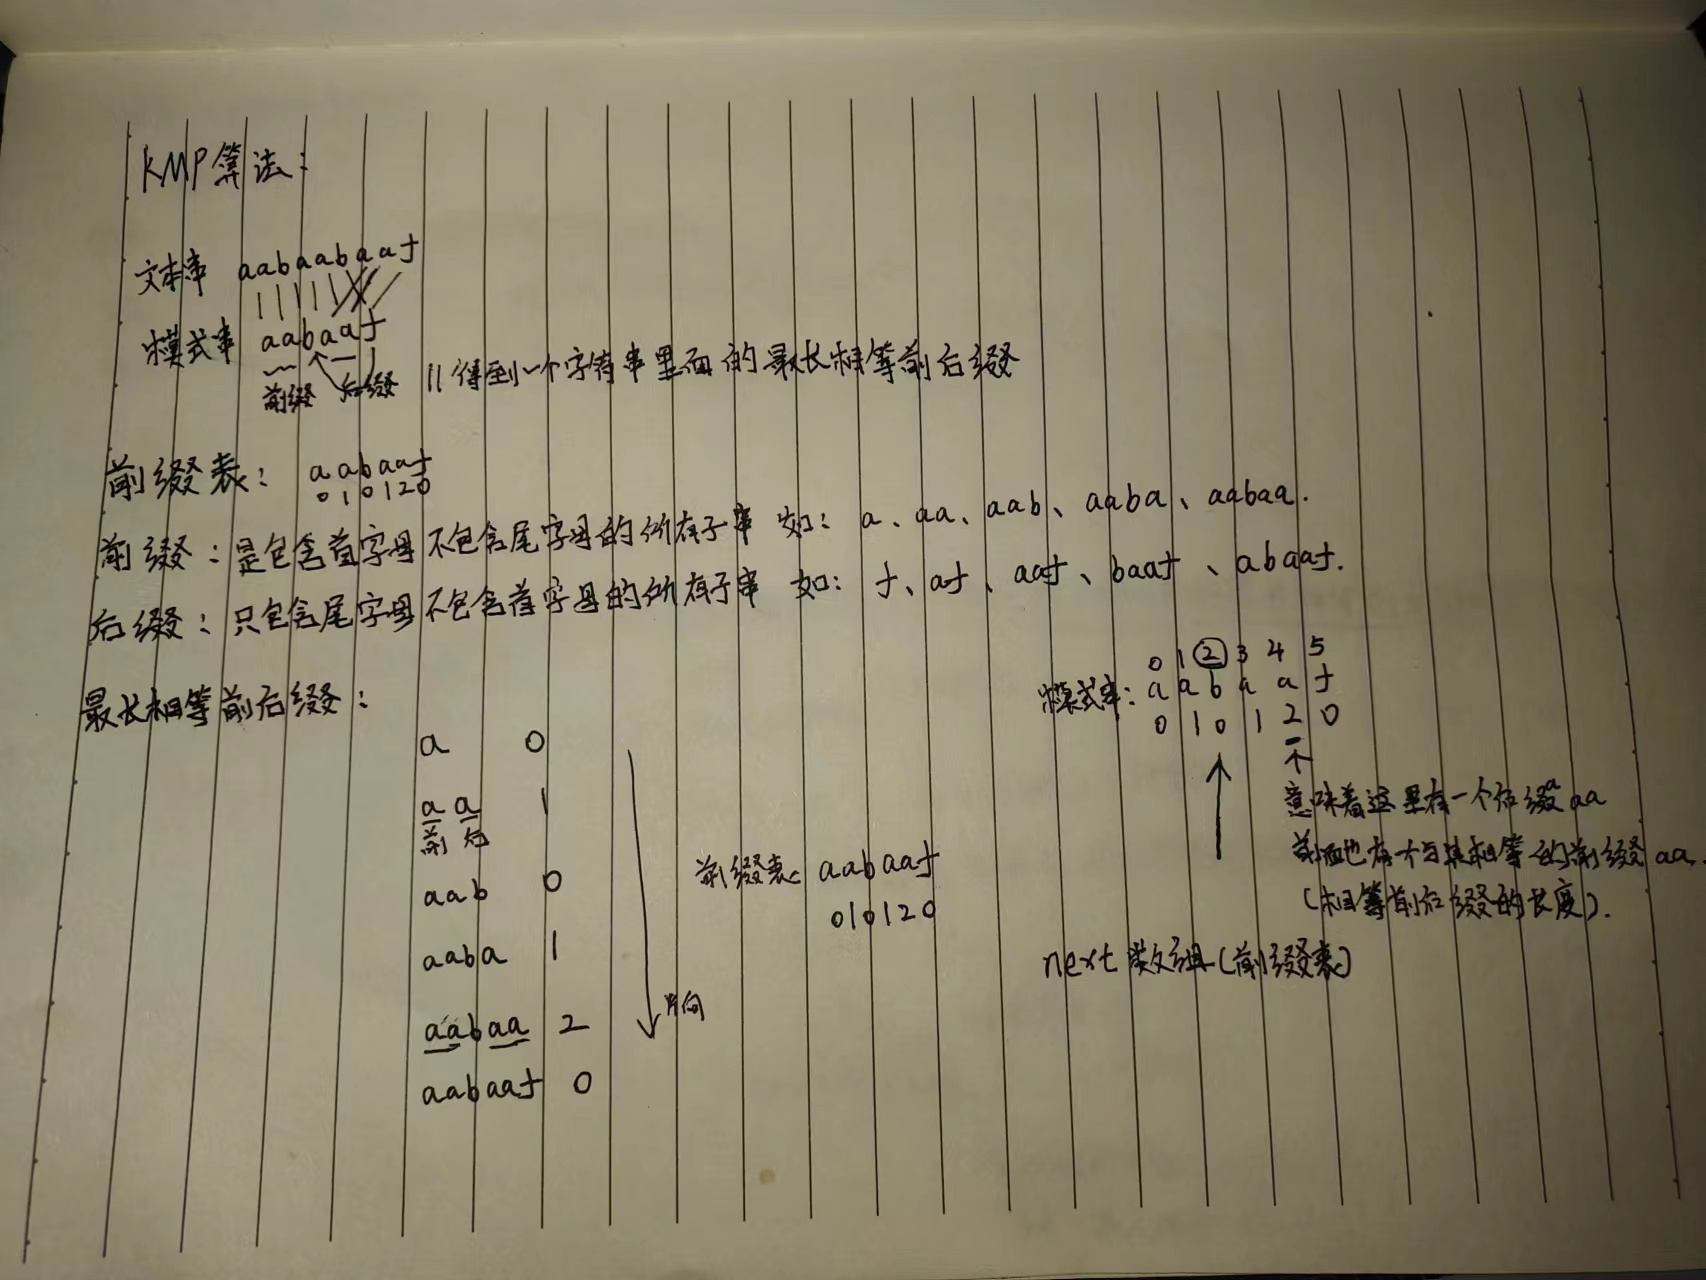 KMP算法：
文本串 aabaabaaf
模式串 aabaaf
前缀 后缀 //得到一个字符串里面的最长相等前后缀
前缀表： aabaaf
010120
前缀：是包含首字母不包含尾字母的所有子串 如：a、aa、aab、aaba、aabaa.
后缀：只包含尾字母不包含首字母的所有子串 如：f、af、aaf、baaf、abaaf.
最长相等前后缀：
a 0
aa 1
前 后
aab 0
aaba 1
aabaa 2
aabaaf 0
方向
前缀表 aabaaf
010120
0 1 2 3 4 5
模式串：a a b a a f
0 1 0 1 2 0
意味着这里有一个后缀aa
前面也有个与其相等的前缀aa.
（相等前后缀的长度）.
next数组（前缀表）